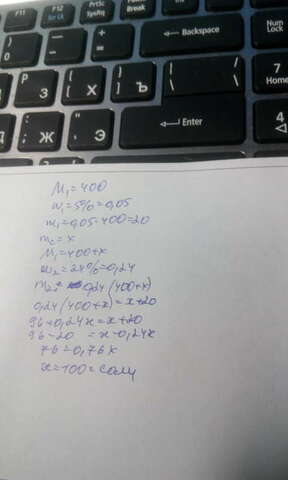 F11 F12 Prtlc SysRq Pause Break Ins
Backspace
Num Lock
З Х Ъ
7 Home
Enter
Д Ж Э
4
M₁=400
w₁=5%=0,05
m₁=0,05·400=20
m_c=x
M₁=400+x
w₂=24%=0,24
m₂= 0,24(400+x)
0,24(400+x)=x+20
96+0,24x=x+20
96-20=x-0,24x
76=0,76x
x=100=соли